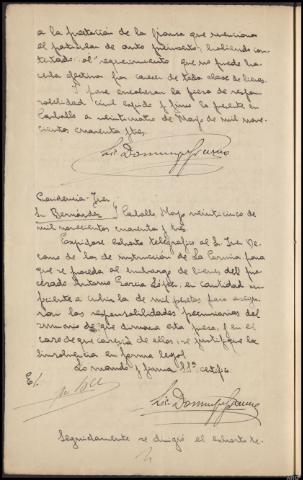 a la prestación de la fianza que menciona
el particular de auto primero, habiendo con-
testado al requerimiento que no puede ha-
cerla efectiva por carecer de toda clase de bienes.
Y para encabezar la pieza de respon-
sabilidad civil expido y firmo la presente en
Carballo a veinticuatro de Mayo de mil nove-
cientos cuarenta y tres.
Luis Dominguez
Providencia - Juez
Sr. Bermúdez Carballo Mayo veinticinco de
mil novecientos cuarenta y tres
Expídase exhorto telegráfico al Sr. Juez De-
cano de los de instrucción de La Coruña para
que se proceda al embargo de bienes del pro-
cesado Antonio García López, en cantidad su-
ficiente a cubrir la de mil pesetas para asegu-
rar las responsabilidades pecuniarias del
sumario de que dimana esta pieza, y en el
caso de que carezca de ellos, se justifique la
insolvencia en forma legal
Lo mandó y firma SSª certifico.
E/.
Luis Dominguez
Seguidamente se dirigió el exhorto te-